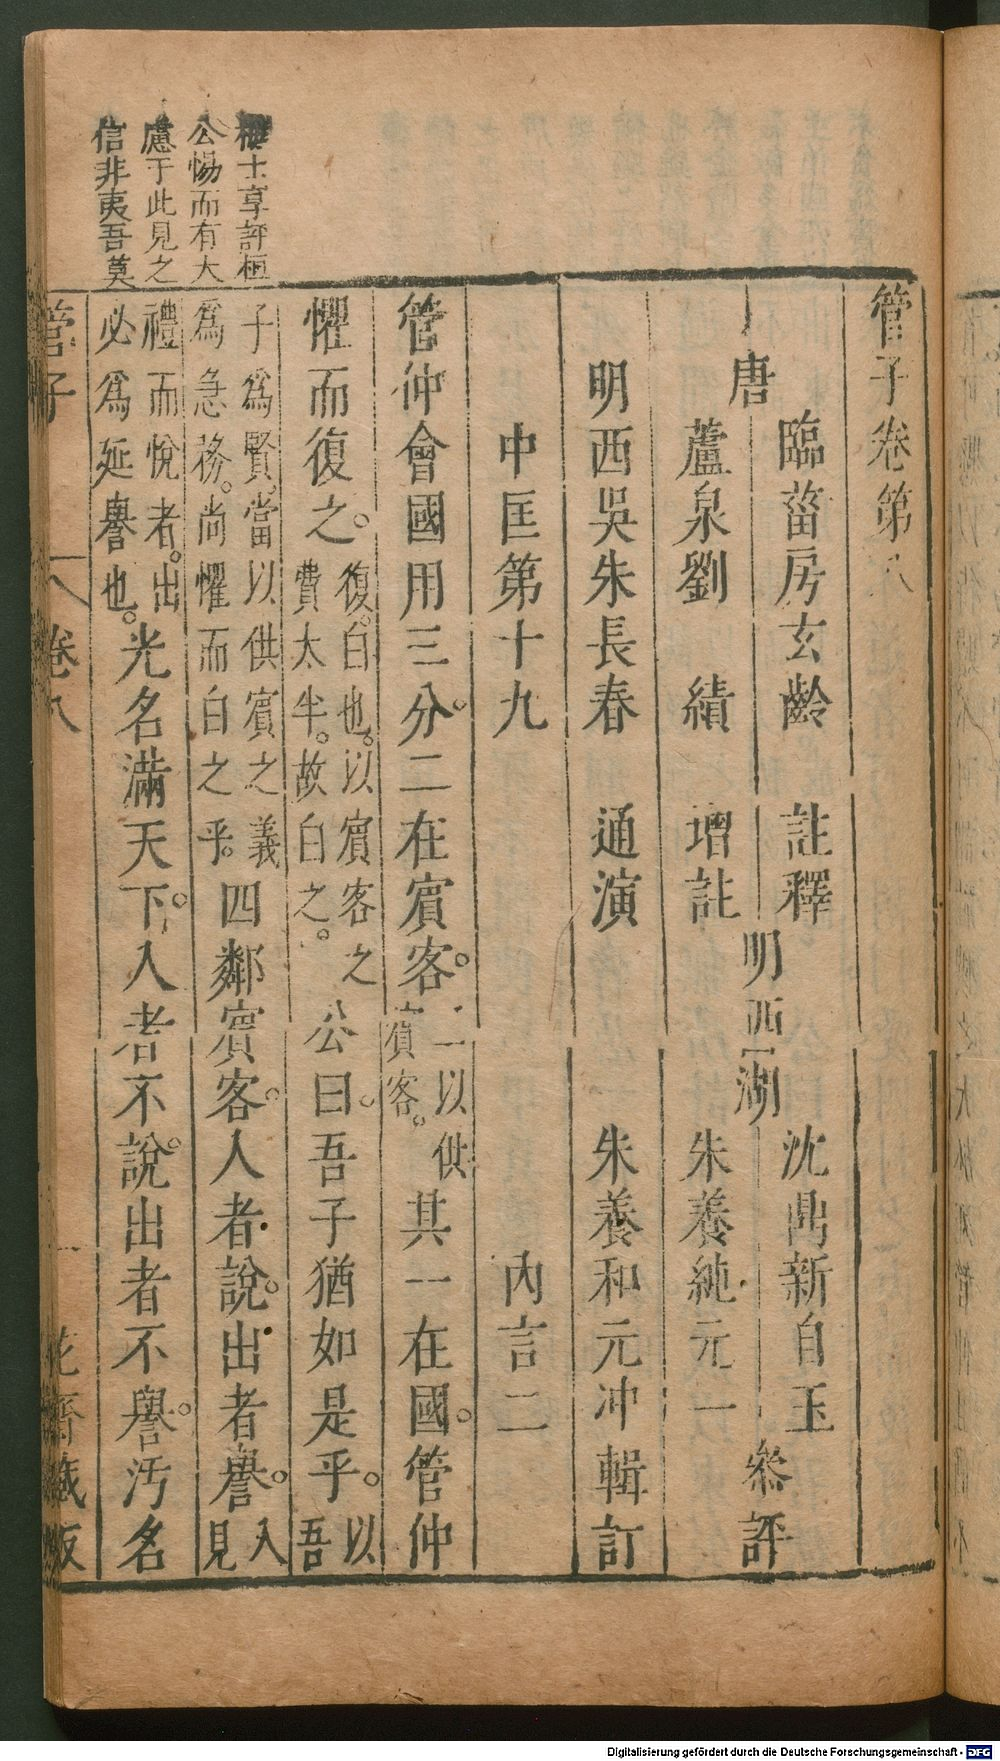 管子卷第八
唐
臨菑房玄齡 註釋
蘆泉劉 績 增註
明西湖
沈鼎新自玉
朱養純元一
參評
明西吳朱長春 通演
朱養和元冲 輯訂
中匡第十九 內言二
管仲會國用三分二在賓客。二以供賓客。其一在國。管仲
懼而復之。復。白也。以賓客之費太半。故白之。公曰。吾子猶如是乎。以吾
子為賢。當以供賓之義為急務。尚懼而白之乎。四鄰賓客。人者說。出者譽。入見
禮而悅者。出必為延譽也。光名滿天下。入者不說。出者不譽。汚名
士享評桓
公惕而有大
慮于此見之
信非夷吾莫
管子 卷八 一 花齋藏板
Digitalisierung gefördert durch die Deutsche Forschungsgemeinschaft - DFG